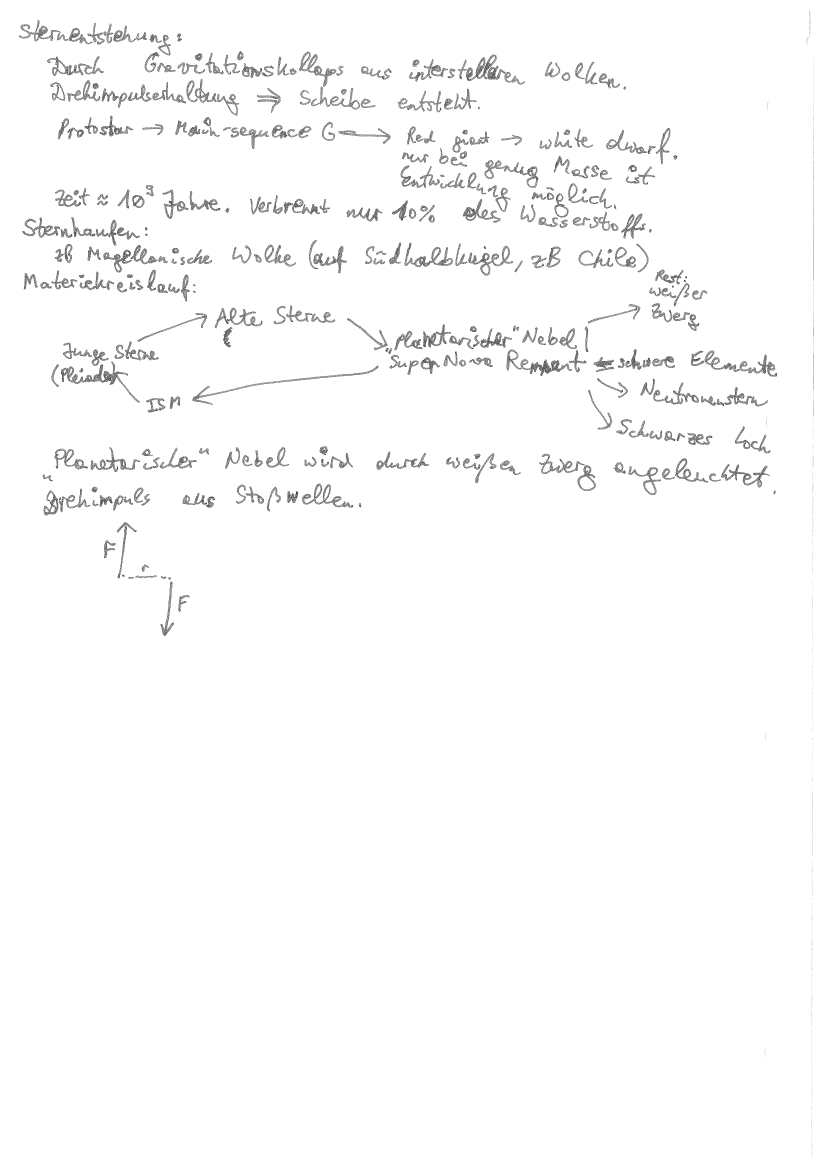 Sternentstehung:
Durch Gravitationskollaps aus interstellaren Wolken.
Drehimpulserhaltung ⇒ Scheibe entsteht.
Protostar → Main-sequence G → Red giant → white dwarf.
nur bei genug Masse ist
Entwicklung möglich.
Zeit ≈ 10⁹ Jahre. Verbrennt nur 10% des Wasserstoffs.
Sternhaufen:
zB Magellanische Wolke (auf Südhalbkugel, zB Chile)
Materiekreislauf:
Rest:
weißer
Zwerg
Alte Sterne
„Planetarischer" Nebel
Junge Sterne
Super Nova Remnant schwere Elemente
(Pleiaden)
Neutronenstern
ISM
Schwarzes Loch
„Planetarischer" Nebel wird durch weißen Zwerg angeleuchtet.
Drehimpuls aus Stoßwellen.
F
r
F